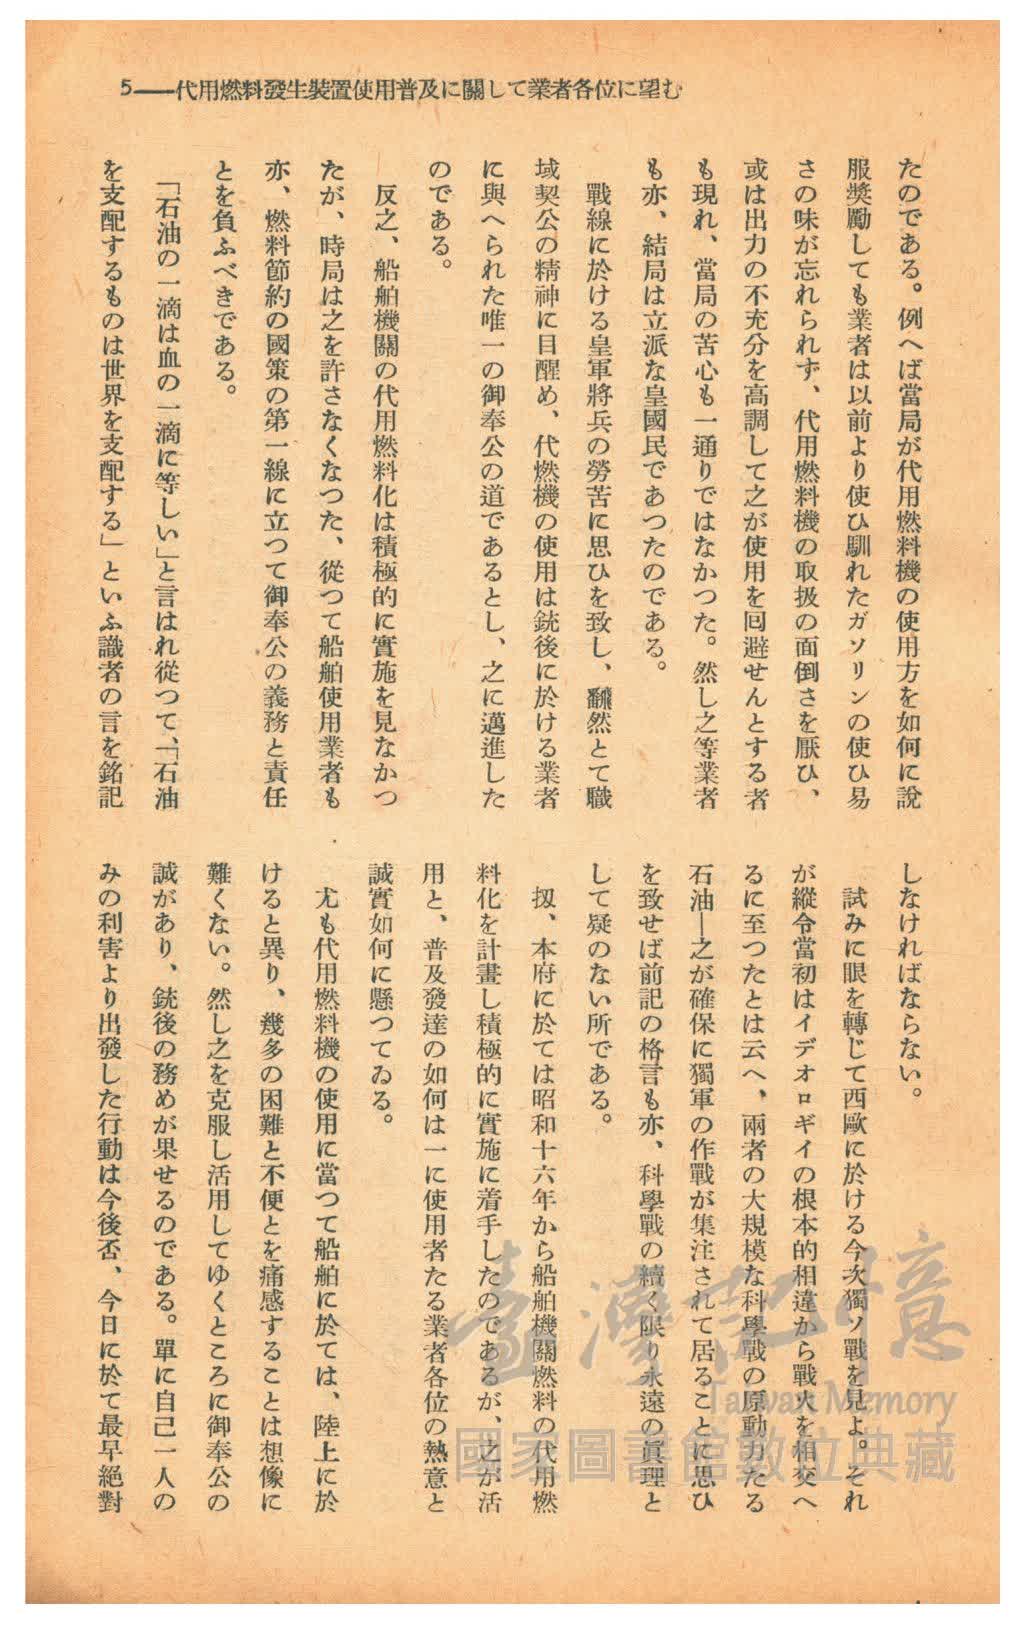 5——代用燃料發生裝置使用普及に關して業者各位に望む
たのである。例へば當局が代用燃料機の使用方を如何に說
服獎勵しても業者は以前より使ひ馴れたガソリンの使ひ易
さの味が忘れられず、代用燃料機の取扱の面倒さを厭ひ、
或は出力の不充分を高調して之が使用を囘避せんとする者
も現れ、當局の苦心も一通りではなかつた。然し之等業者
も亦、結局は立派な皇國民であつたのである。
戰線に於ける皇軍將兵の勞苦に思ひを致し、飜然とて職
域契公の精神に目醒め、代燃機の使用は銃後に於ける業者
に與へられた唯一の御奉公の道であるとし、之に邁進した
のである。
反之、船舶機關の代用燃料化は積極的に實施を見なかつ
たが、時局は之を許さなくなつた、從つて船舶使用業者も
亦、燃料節約の國策の第一線に立つて御奉公の義務と責任
とを負ふべきである。
「石油の一滴は血の一滴に等しい」と言はれ從つて、「石油
を支配するものは世界を支配する」といふ識者の言を銘記
しなければならない。
試みに眼を轉じて西歐に於ける今次獨ソ戰を見よ。それ
が縱令當初はイデオロギイの根本的相違から戰火を相交へ
るに至つたとは云へ、兩者の大規模な科學戰の原動力たる
石油—之が確保に獨軍の作戰が集注されて居ることに思ひ
を致せば前記の格言も亦、科學戰の續く限り永遠の眞理と
して疑のない所である。
扨、本府に於ては昭和十六年から船舶機關燃料の代用燃
料化を計畫し積極的に實施に着手したのであるが、之が活
用と、普及發達の如何は一に使用者たる業者各位の熱意と
誠實如何に懸つてゐる。
尤も代用燃料機の使用に當つて船舶に於ては、陸上に於
けると異り、幾多の困難と不便とを痛感することは想像に
難くない。然し之を克服し活用してゆくところに御奉公の
誠があり、銃後の務めが果せるのである。單に自己一人の
みの利害より出發した行動は今後否、今日に於て最早絕對
臺灣記憶
Taiwan Memory
國家圖書館數位典藏